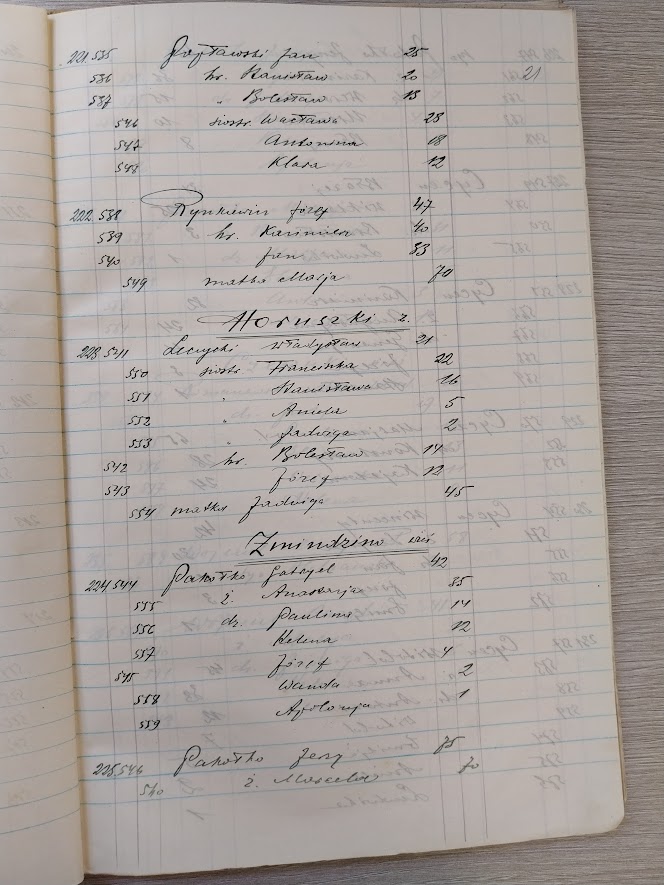 221. 535 Pojtawski Jan 25
536 br. Stanisław 20 21
537 " Bolesław 13
546 siostr. Wacława 23
547 Antonina 18
548 Klara 12
222. 538 Rynkiewicz Józef 47
539 br. Kazimierz 40
540 Jan 33
549 matka Marja 70
Horuszki z.
223. 541 Leczycki Władysław 21
550 siostr. Franciszka 22
551 " Stanisława 16
552 " Aniela 5
553 " Jadwiga 2
542 br. Bolesław 14
543 Józef 12
554 matka Jadwiga 45
Zmindzino wieś
224. 544 Pakołko Gabryel 42
555 ż. Anastazja 35
556 dr. Paulina 14
557 Helena 12
545 Józef 4
558 Wanda 2
559 Apolonja 1
225. 546 Pakołko Jerzy 75
560 ż. Marcela 70